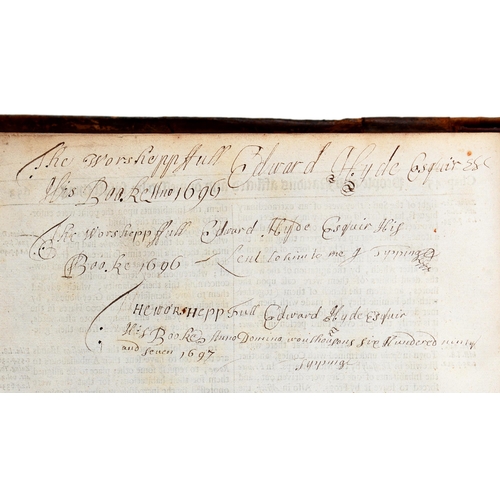 The Worsheppffull Edward Hyde Esquir
His Booke Ano 1696
The Worsheppffull Edward Hyde Esquir His
Booke 1696 Lent to him to me J Typpinge
THE WORSHEPP ffull Edward Hyde Esquir
His Booke Anno Domino won thousons six Hundered ninty
and seven 1697
Typpinge